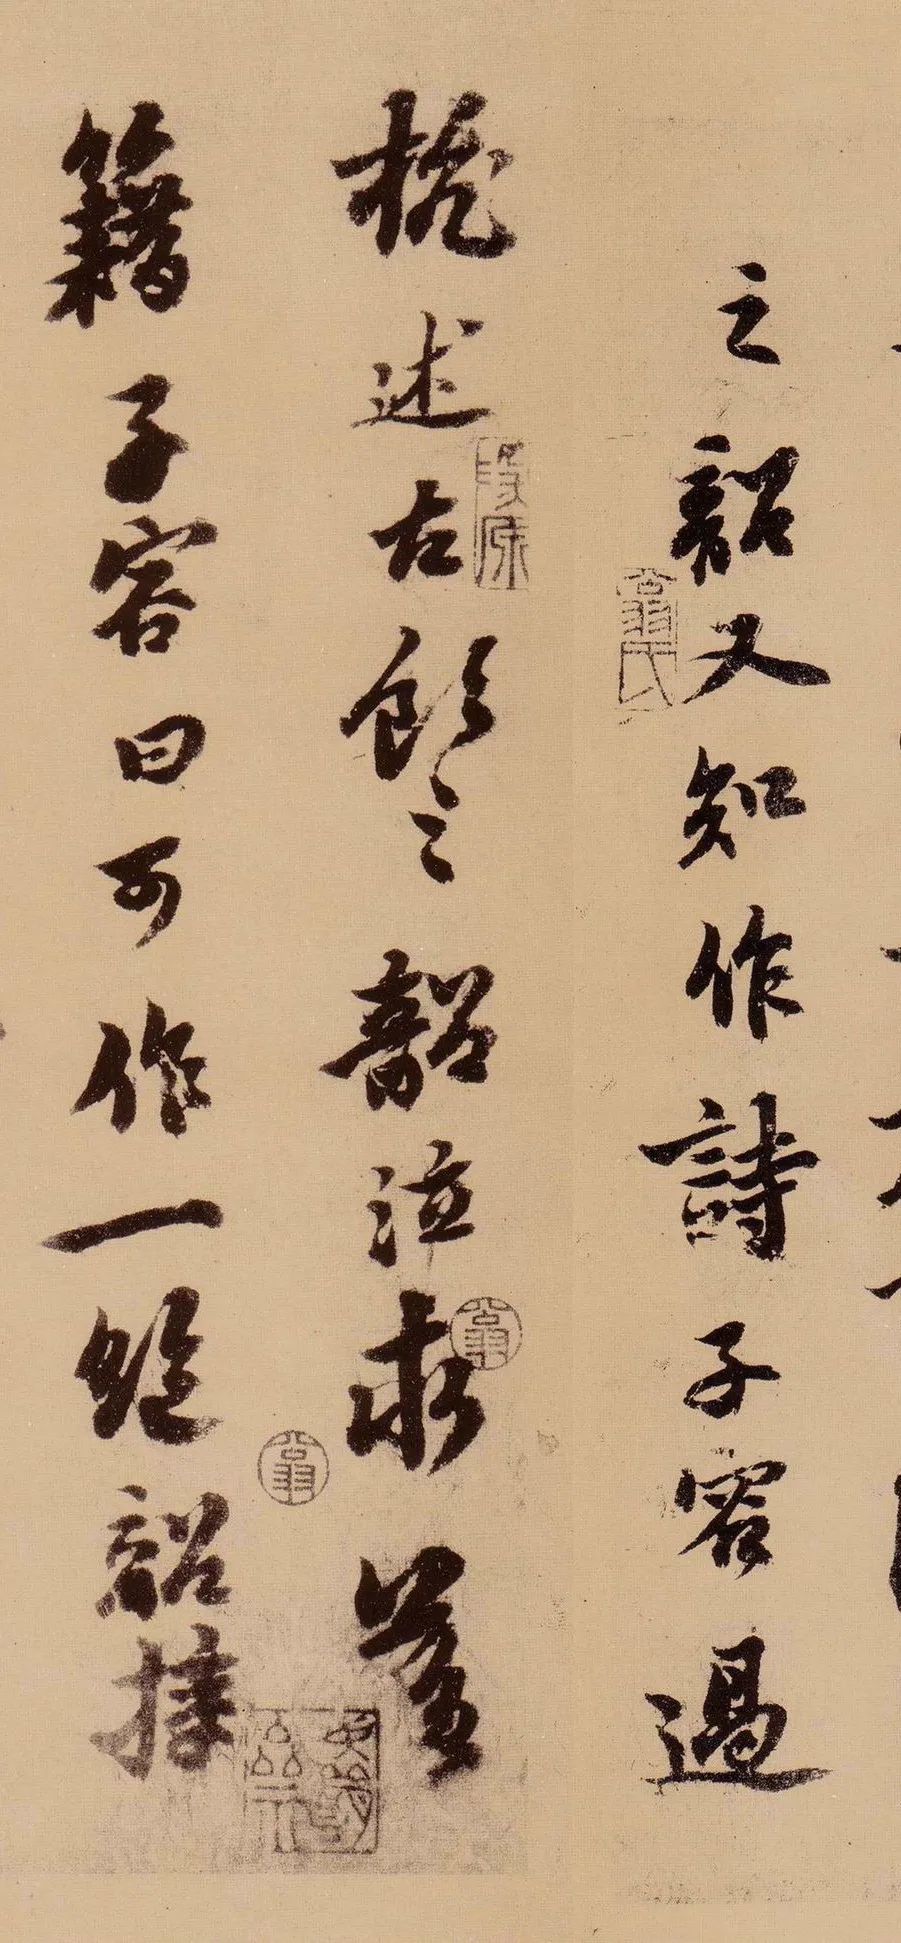 之韶又知作詩子容過
杭述古飲之韶泣求落
籍子容曰可作一絕韶援
翁
翁